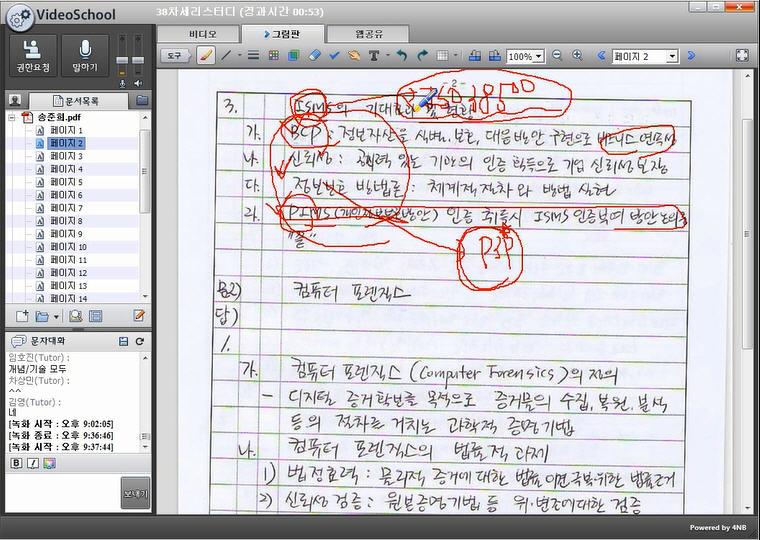 VideoSchool
38차세리스터디 (경과시간 00:53)
권한요청
말하기
비디오
그림판
웹공유
도구
100%
페이지 2
문서목록
송준회.pdf
페이지 1
페이지 2
페이지 3
페이지 4
페이지 5
페이지 6
페이지 7
페이지 8
페이지 9
페이지 10
페이지 11
페이지 12
페이지 13
페이지 14
문자대화
임호진(Tutor) :
개념/기술 모두
차상민(Tutor) :
^^
김영(Tutor) :
네
[녹화 시작 : 오후 9:02:05]
[녹화 종료 : 오후 9:36:46]
[녹화 시작 : 오후 9:37:44]
B I
보내기
- 2 -
3. ISMS의 기대효과 및 현황
가. BCP : 정보자산을 식별, 보완, 대응방안 구현으로 비즈니스 연속성
나. 신뢰성 : 공신력 있는 기관의 인증 획득으로 기업 신뢰성 보장
다. 정보보호 방법론 : 체계적 절차와 방법 실현
라. PIMS 인증 취득시 ISMS 인증
"끝"
PIP
문2) 컴퓨터 포렌직스
답)
1.
가. 컴퓨터 포렌직스 (Computer Forensics)의 정의
- 디지털 증거확보를 목적으로 증거물의 수집, 복원, 분석
등의 절차를 거치는 과학적 증명기법
나. 컴퓨터 포렌직스의 법률적 과제
1) 법정효력 : 물리적 증거에 대한 법률
2) 신뢰성 검증 : 원본증명기법 등 위·변조에 대한 검증
Powered by 4NB